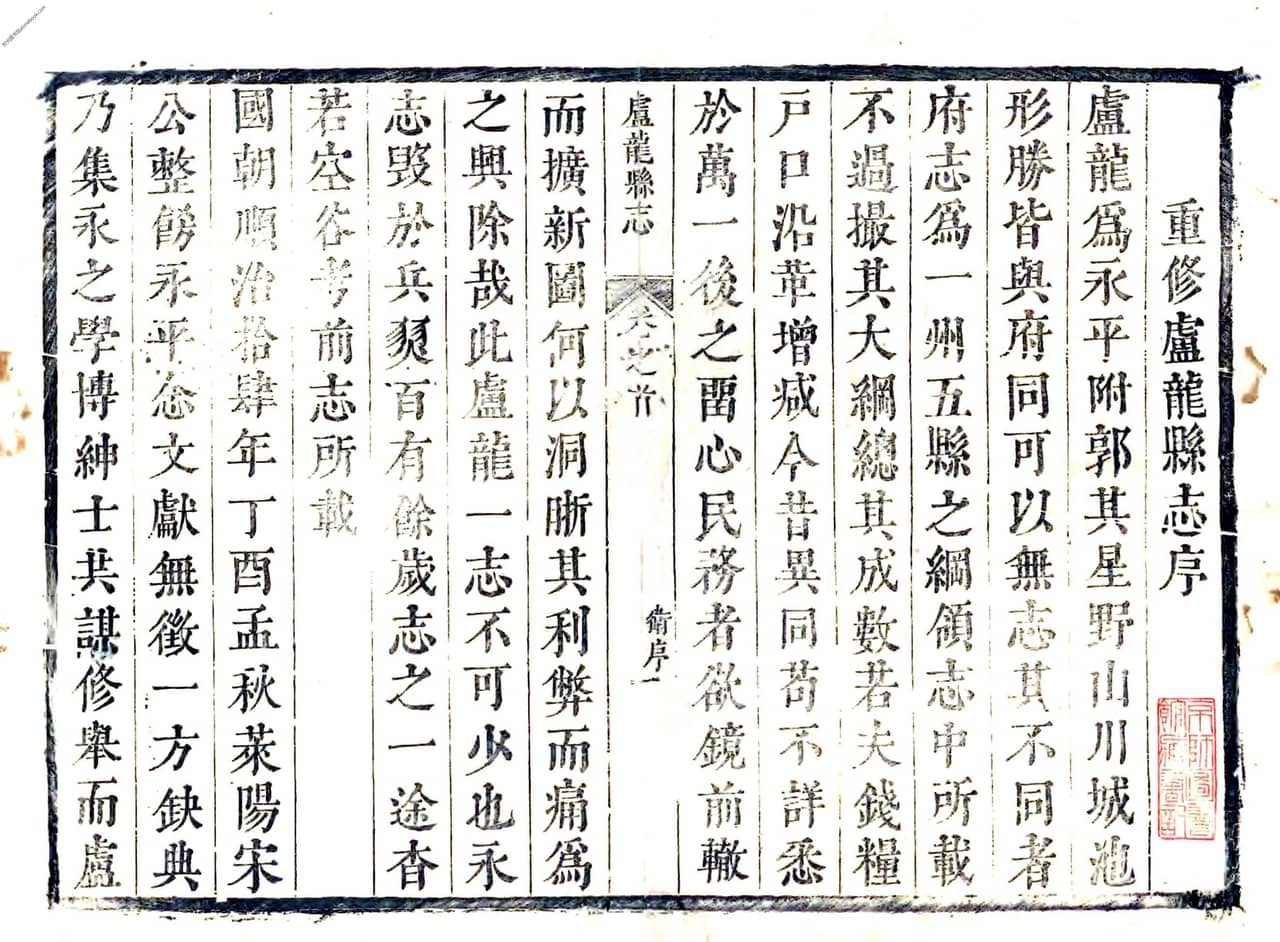 重修盧龍縣志序
盧龍爲永平附郭其星野山川城池
形勝皆與府同可以無志其不同者
府志爲一州五縣之綱領志中所載
不過撮其大綱總其成數若夫錢糧
戸口沿革增减今昔異同苟不詳悉
於萬一後之畱心民務者欲鏡前轍
盧龍縣志
卷之首
衛序一
而擴新圖何以洞晰其利弊而痛爲
之興除哉此盧龍一志不可少也永
志毀於兵燹百有餘歲志之一途杳
若空谷考前志所載
國朝順治拾肆年丁酉孟秋萊陽宋
公整飭永平念文獻無徵一方缺典
乃集永之學博紳士共謀修舉而盧